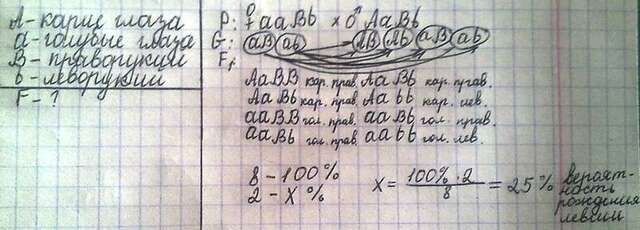 A - карие глаза
a - голубые глаза
B - праворукий
b - леворукий
F - ?
P: ♀ aaBb x ♂ AaBb
G: aB ab AB Ab aB ab
F₁
AaBB кар. прав. AaBb кар. прав.
AaBb кар. прав. Aabb кар. лев.
aaBB гол. прав. aaBb гол. прав.
aaBb гол. прав. aabb гол. лев.
8 - 100%
2 - X%
X = 100% · 2 / 8 = 25% вероят-
ность
рождения
левши